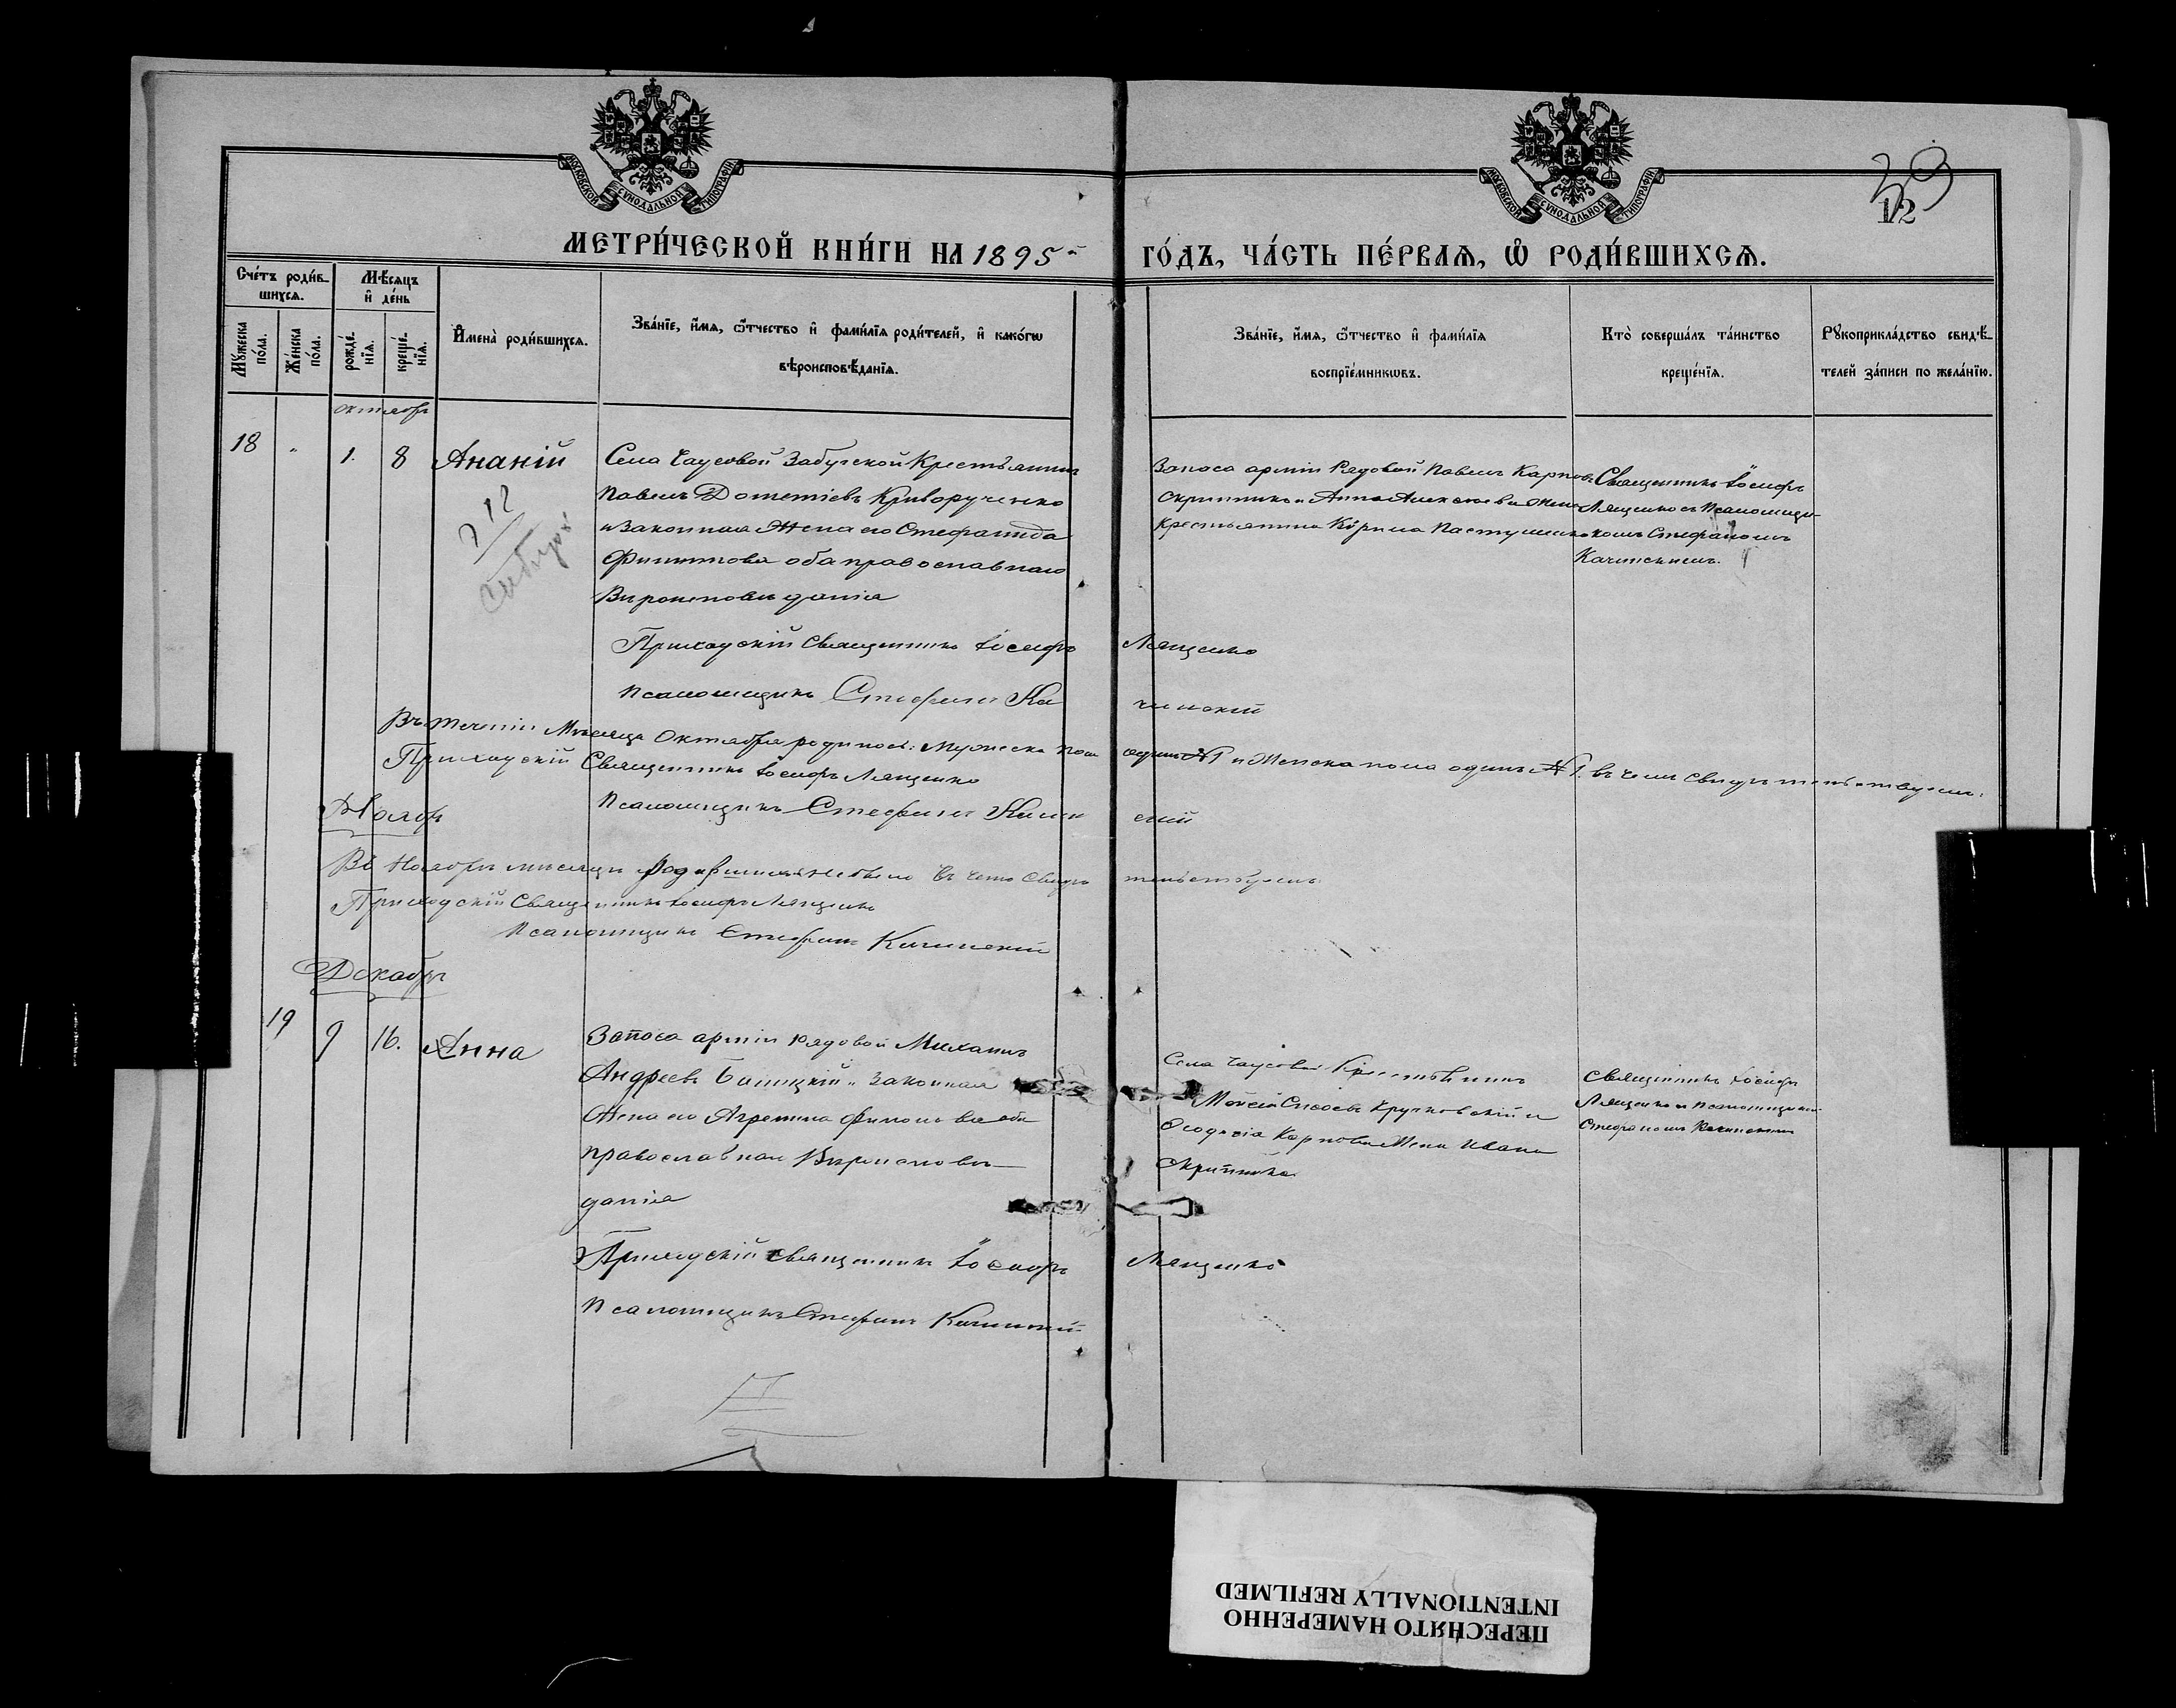 МОСКОВСКОЙ СѴНОДАЛЬНОЙ ТИПОГРАФІИ
МОСКОВСКОЙ СѴНОДАЛЬНОЙ ТИПОГРАФІИ
39
12
МЕТРИ́ЧЕСКОЙ КНИ́ГИ НА 1895
ГО́ДЪ, ЧА́СТЬ ПЕ́РВАЯ, Ѡ РОДИ́ВШИХСЯ.
Сче́тъ роди́в-
шихся.
Мꙋжеска по́ла.
Же́нска по́ла.
Мѣ́сяцъ
и҆ де́нь
рожде́-
нїѧ.
креще́-
нїѧ.
И҆мена̀ роди́вшихся.
Зва́нїе, и҆́мѧ, ѻ҆́тчество и҆ фами́лїѧ роди́телей, и҆ како́гѡ
вѣроисповѣ́данїѧ.
Зва́нїе, и҆́мѧ, ѻ҆́тчество и҆ фами́лїѧ
воспрїе́мникѡвъ.
Кто̀ соверша́лъ та́инство
креще́нїѧ.
Рꙋкоприкла́дство свидѣ́-
телей за́писи по жела́нїю.
октябрь
18 " 1. 8 Ананій
Села Чаусовой Забугской Крестьянинъ
Павелъ Дометіевъ Криворученко
и Законная Жена его Стефанида
Филиппова оба православнаго
Вѣроисповѣданія
Запаса арміи Рядовой Павелъ Карповъ
Скрипникъ и Анна Алексѣева жена
крестьянина Кѵрила Пастушенко
Священникъ Іосифъ
Лященко съ Псаломщи-
комъ Стефаномъ
Качинскимъ.
Приходскій Священникъ Іосифъ Лященко
Псаломщикъ Стефанъ Качинскій
Въ течении Мѣсяца Октября родилось: Мужеска пола одинъ №1 и Женска пола одинъ №1. въ чемъ свидѣтельствуемъ:
Приходскій Священникъ Іосифъ Лященко
Псаломщикъ Стефанъ Качинскій
Ноябрь
Въ Ноябрѣ мѣсяцѣ Родившихся не было въ чемъ свидѣтельствуемъ
Приходскій Священникъ Іосифъ Лященко
Псаломщикъ Стефанъ Качинскій
Декабрь
19 9 16. Анна
Запаса арміи рядовой Михаилъ
Андреевъ и Законная
Жена его Агрепина оба
православнаго Вѣроисповѣ-
данія
Села Чаусовой Крестьянинъ
Моисей Крутковскій и
Ѳеодосія Карпова Жена Ивана
Скрипника
Священникъ Іосифъ
Лященко и Псаломщикомъ
Стефаномъ Качинскимъ
Приходскій священникъ Іосифъ Лященко
Псаломщикъ Стефанъ Качинскій
ПЕРЕСНЯТО НАМЕРЕННО
INTENTIONALLY REFILMED